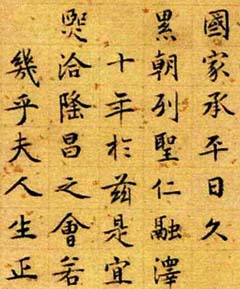 國家承平日久
累朝列聖仁融澤
十年於茲是宜
洽隆昌之會若
幾乎夫人生正